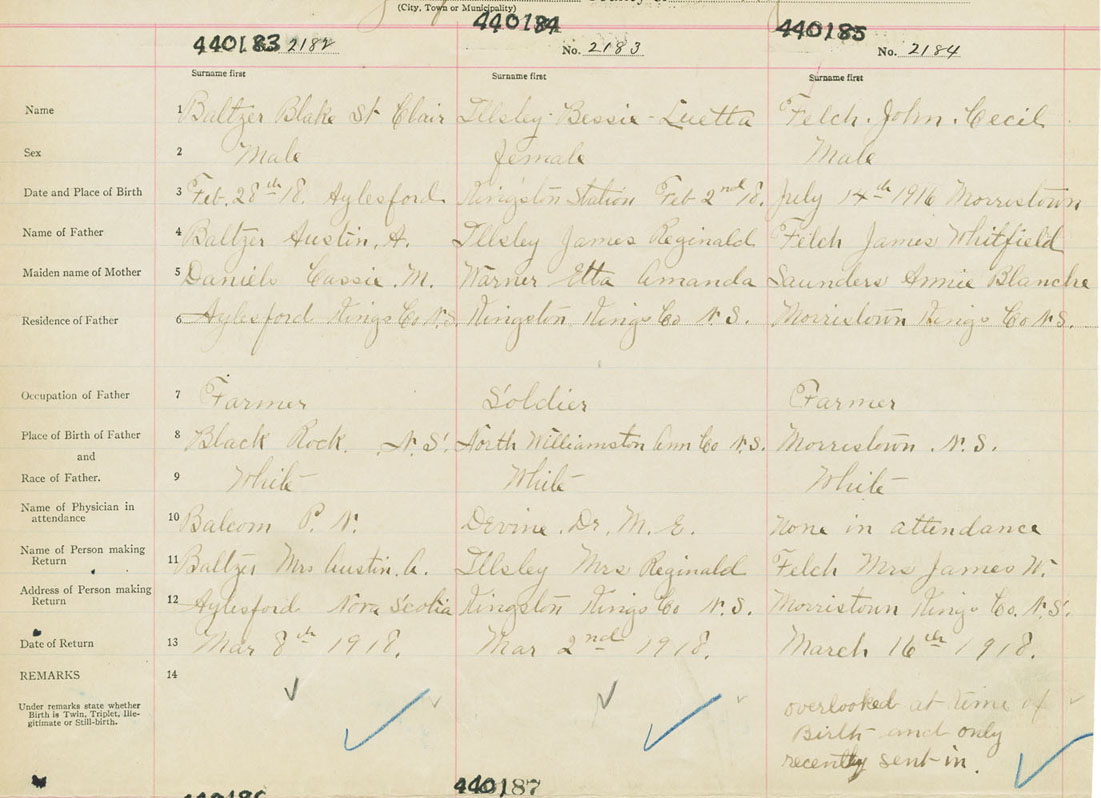 (City, Town or Municipality)
440183 2182
440184
No. 2183
440185
No. 2184
Surname first Surname first Surname first
Name 1 Baltzer Blake St Clair Illsley Bessie Luetta Felch. John. Cecil
Sex 2 Male female Male
Date and Place of Birth 3 Feb. 28th 18. Aylesford Kingston Station Feb 2nd 18. July 14th 1916 Morristown
Name of Father 4 Baltzer Austin. A. Illsley James Reginald Felch James Whitfield
Maiden name of Mother 5 Daniels Cassie. M. Warner Etta Amanda Saunders Annie Blanche
Residence of Father 6 Aylesford Kings Co N.S. Kingston Kings Co N.S. Morristown Kings Co N.S.
Occupation of Father 7 Farmer Soldier Farmer
Place of Birth of Father 8 Black Rock. N.S. North Williamston Ann Co N.S. Morristown. N.S.
and
Race of Father. 9 White White White
Name of Physician in
attendance 10 Balcom P. N. Devine. Dr. M. E. None in attendance
Name of Person making
Return 11 Baltzer Mrs Austin. A. Illsley Mrs Reginald Felch Mrs James W.
Address of Person making
Return 12 Aylesford Nova Scotia Kingston Kings Co N.S. Morristown Kings Co. N.S.
Date of Return 13 Mar 8th 1918. Mar 2nd 1918. March 16th 1918.
REMARKS 14
Under remarks state whether
Birth is Twin, Triplet, Ille-
gitimate or Still-birth.
overlooked at time of
Birth and only
recently sent in.
440186 440187